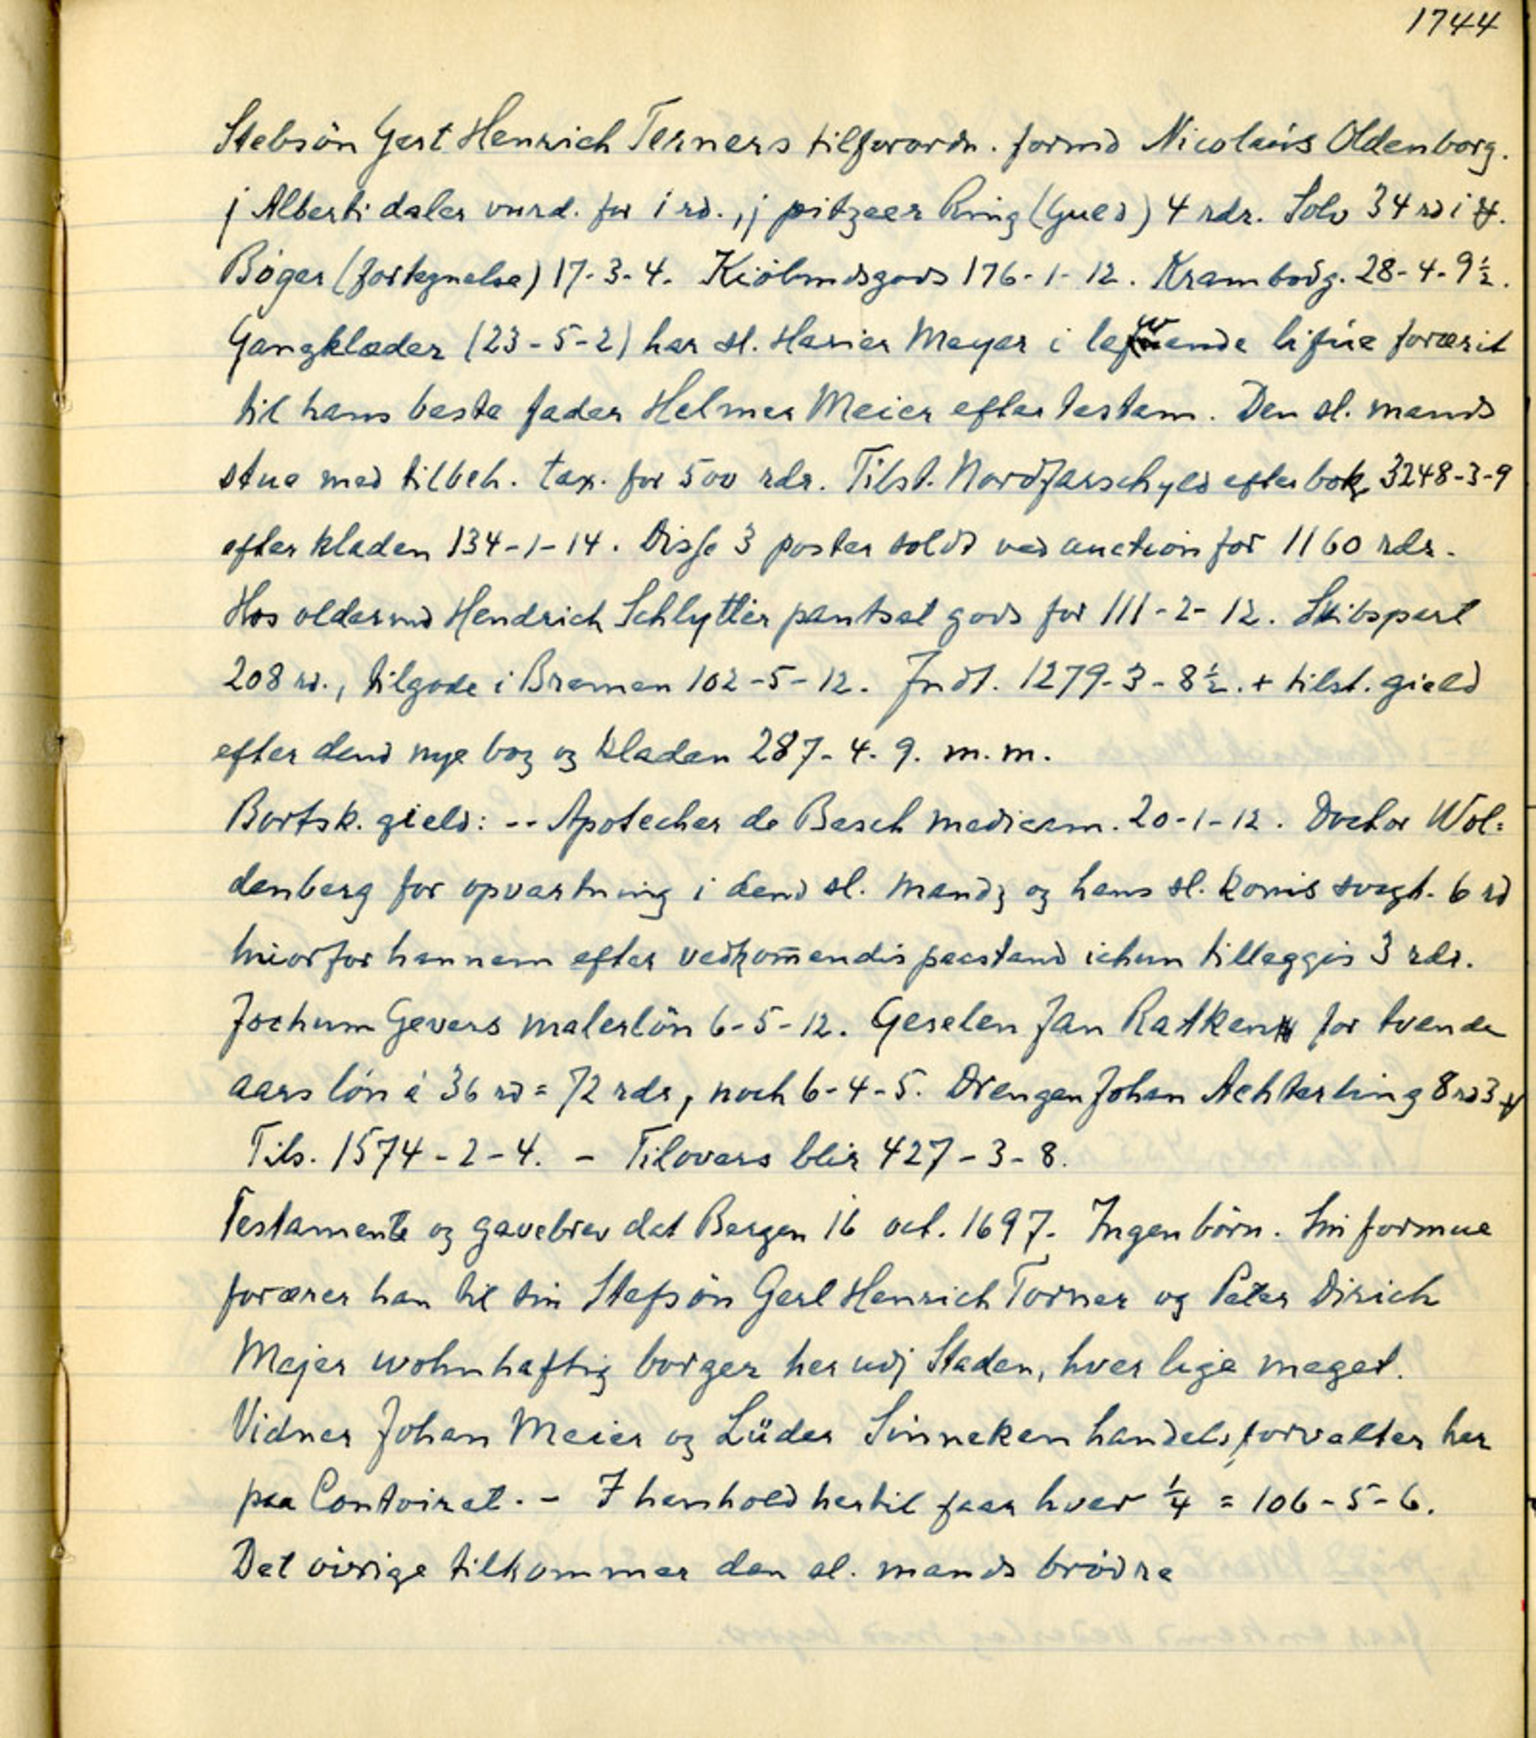 1744
Stebsön Gert Henrich Terners tilforordn. formd Nicolaus Oldenborg.
j Alberti daler vurd. for 1 rd., j pitzeer Ring (Gued) 4 rdr. Solv 34 rd i
Bøger (fortegnelse) 17-3-4. Kiöbmdsgods 176-1-12. Krambodg. 28-4-9½.
Gangklæder (23-5-2) har sl. Harier Meyer i lefwende lifúe foræret
til hans beste fader Helmer Meier efter testam. Den sl. mands
stue med tilbeh. tax. for 500 rdr. Tilst. Nordfarschyld efter bok 3248-3-9
efter kladen 134-1-14. Disse 3 poster sold ved auction for 1160 rdr.
Hos oldermd Hendrich Schlytter pantsat gods for 111-2-12. Skibspart
208 rd., tilgode i Bremen 102-5-12. Indt. 1279-3-8½. + tilst. gield
efter dend nye bog og kladen 287-4-9. m.m.
Bortsk. gield: -- Apotecher de Besch medicam. 20-1-12. Doctor Wol=
denberg for opvartning i dend sl. mands og hans sl. konis svagh. 6 rd
hvorfor hannem efter vedkom̄endis paastand ichun tilleggis 3 rdr.
Jochum Gevers malerlön 6-5-12. Geselen Jan Ratken for tvende
aars lön á 36 rd = 72 rdr, noch 6-4-5. Drengen Johan Achterling 8 rd 3
Tils. 1574-2-4. - Tilovers blir 427-3-8.
Testamente og gavebrev dat Bergen 16 oct. 1697. Ingen börn. Sin formue
forærer han til sin Stefsön Gert Henrich Torner og Peter Dirich
Mejer wohnhaftig borger her udj Staden, hver lige meget.
Vidner Johan Meier og Lüder Sinneken handelsforvalter her
paa Contoiret. - I henhold hertil faar hver ¼ = 106-5-6.
Det övrige tilkommer den sl. mands brödre